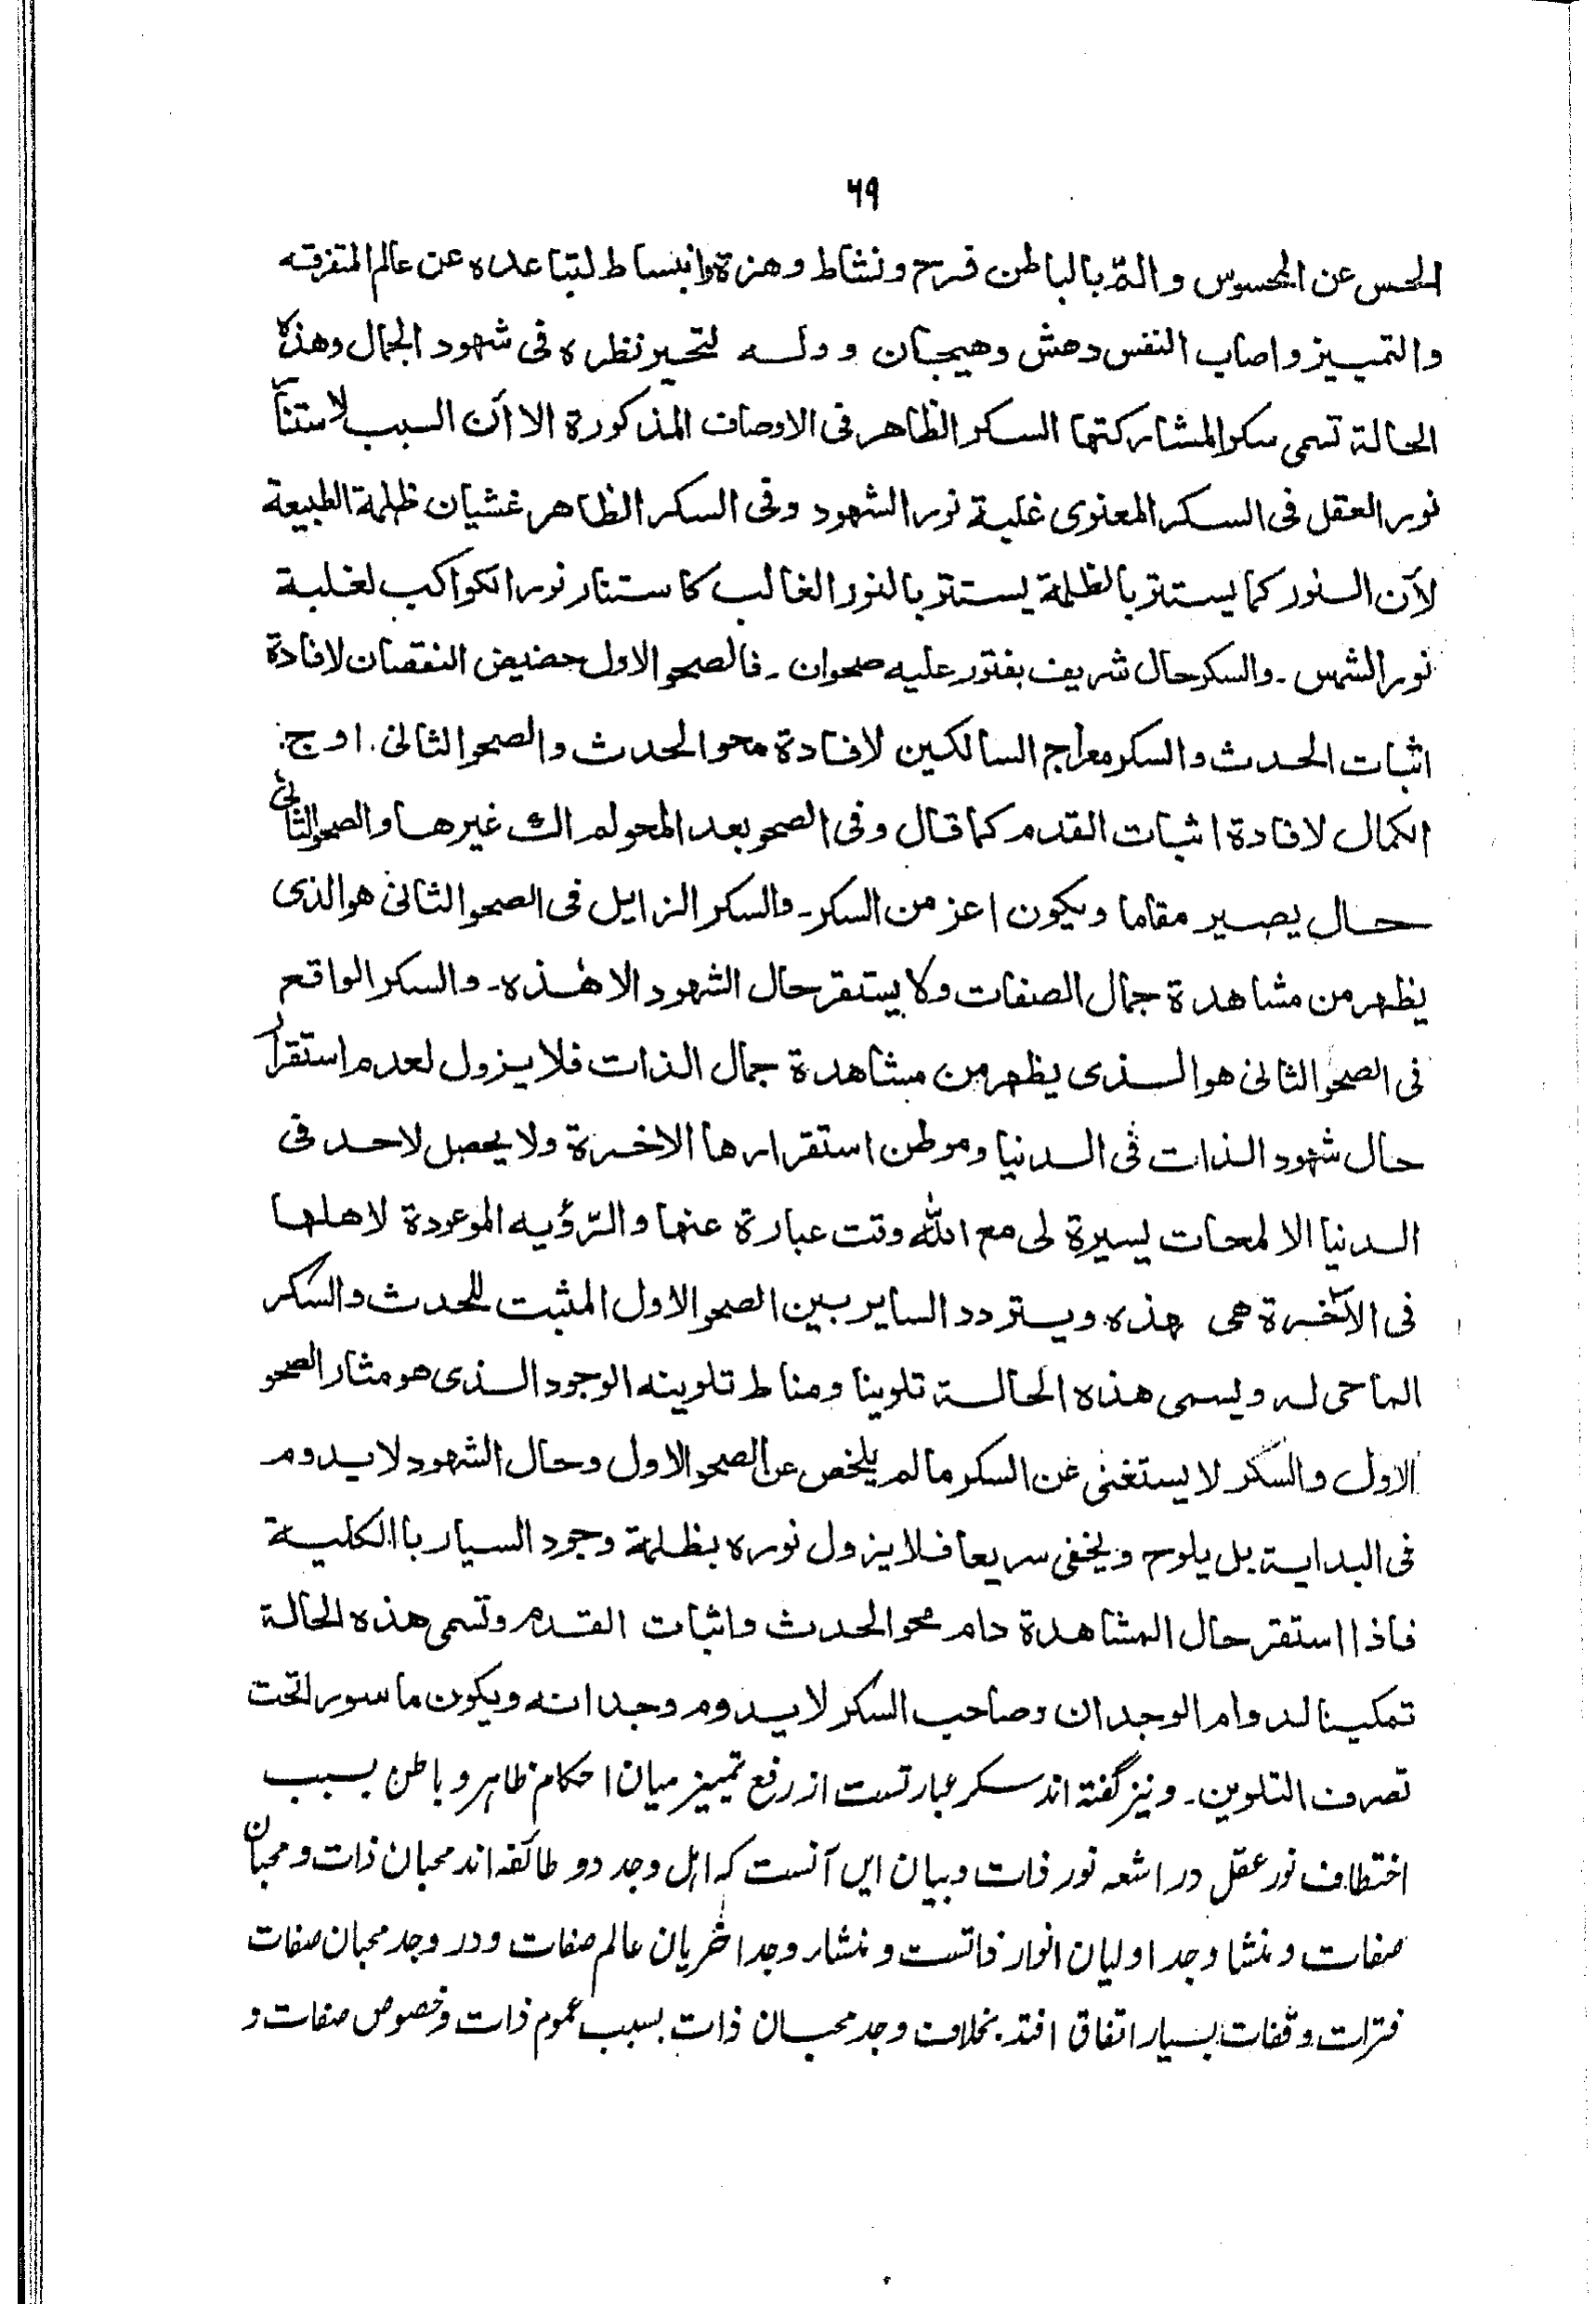 ٦٩
الحس عن المحسوس والمّ بالباطن فرح ونشاط وهزة وانبساط لتباعده عن عالم المتفرقه
والتمييز واصاب النفس دهش وهيجان ووله لتحير نظره فى شهود الجمال وهذه
الحالة تسمى سكرا لمشاركتها السكر الظاهر فى الاوصاف المذكورة الا ان السبب لاستنار
نور العقل فى السكر المعنوى غلبة نور الشهود وفى السكر الظاهر غشيان ظلمة الطبيعة
لآن النور كما يستتر بالظلمة يستتر بالنور الغالب كاستنار نور الكواكب لغلبة
نور الشمس ۔ والسكر حال شريف بفتور عليه صحوان ۔ فالصحو الاول حضيض النقصان لافادة
اثبات الحدث والسكر معراج السالكين لافادة محو الحدث والصحو الثانى اوج
الكمال لافادة اثبات القدم كما قال وفى الصحو بعد المحو لم اك غيرها والصحو الثانى
حال يصير مقاما ويكون اعز من السكر ۔ والسكر الزايل فى الصحو الثانى هو الذى
يظهر من مشاهدة جمال الصفات ولا يستقر حال الشهود الا هذه ۔ والسكر الواقع
فى الصحو الثانى هو الذى يظهر من مشاهدة جمال الذات فلا يزول لعدم استقرار
حال شهود الذات فى الدنيا وموطن استقرارها الاخرة ولا يحصل لاحد فى
الدنيا الا لمحات يسيرة لى مع الله وقت عبارة عنها والرّؤيه الموعودة لاهلها
فى الآخرة هى هذه ويتردد الساير بين الصحو الاول المثبت للحدث والسكر
الماحى له ويسمى هذه الحالة تلوينا ومناط تلوينه الوجود الذى هو مثار الصحو
الاول والسكر لا يستغنى عن السكر مالم يلخص عن الصحو الاول وحال الشهود لا يدوم
فى البداية بل يلوح ويخفى سريعا فلا يزول نوره بظلمة وجود السيار با الكلية
فاذا استقر حال المشاهدة دام محو الحدث واثبات القدم وتسمى هذه الحالة
تمكينا لدوام الوجدان وصاحب السكر لا يدوم وجدانه ويكون ماسورا تحت
تصرف التلوين ۔ ونیز گفته اند سکر عبارتست از رفع تمییز میان احکام ظاہر و باطن بسبب
اختطاف نور عقل در اشعه نور ذات و بیان ایں آنست کہ اہل وجد دو طائفه اند محبان ذات و محبان
صفات و منشا وجد اولیان انوار ذاتست و منشار وجد اخریان عالم صفات ودر وجد محبان صفات
فترات و قفات بسیار اتفاق افتد بخلاف وجد محبان ذات بسبب عموم ذات و خصوص صفات و